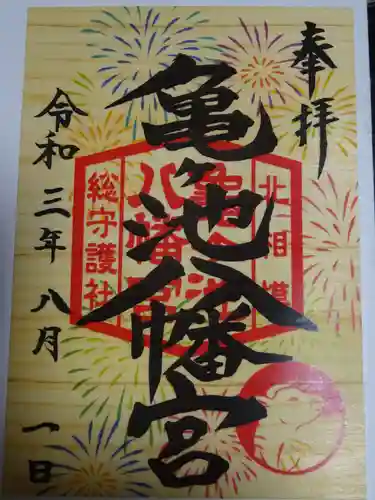 奉拝
亀ヶ池八幡宮
令和三年八月一日
北相模
亀ヶ池
八幡宮
総守護社